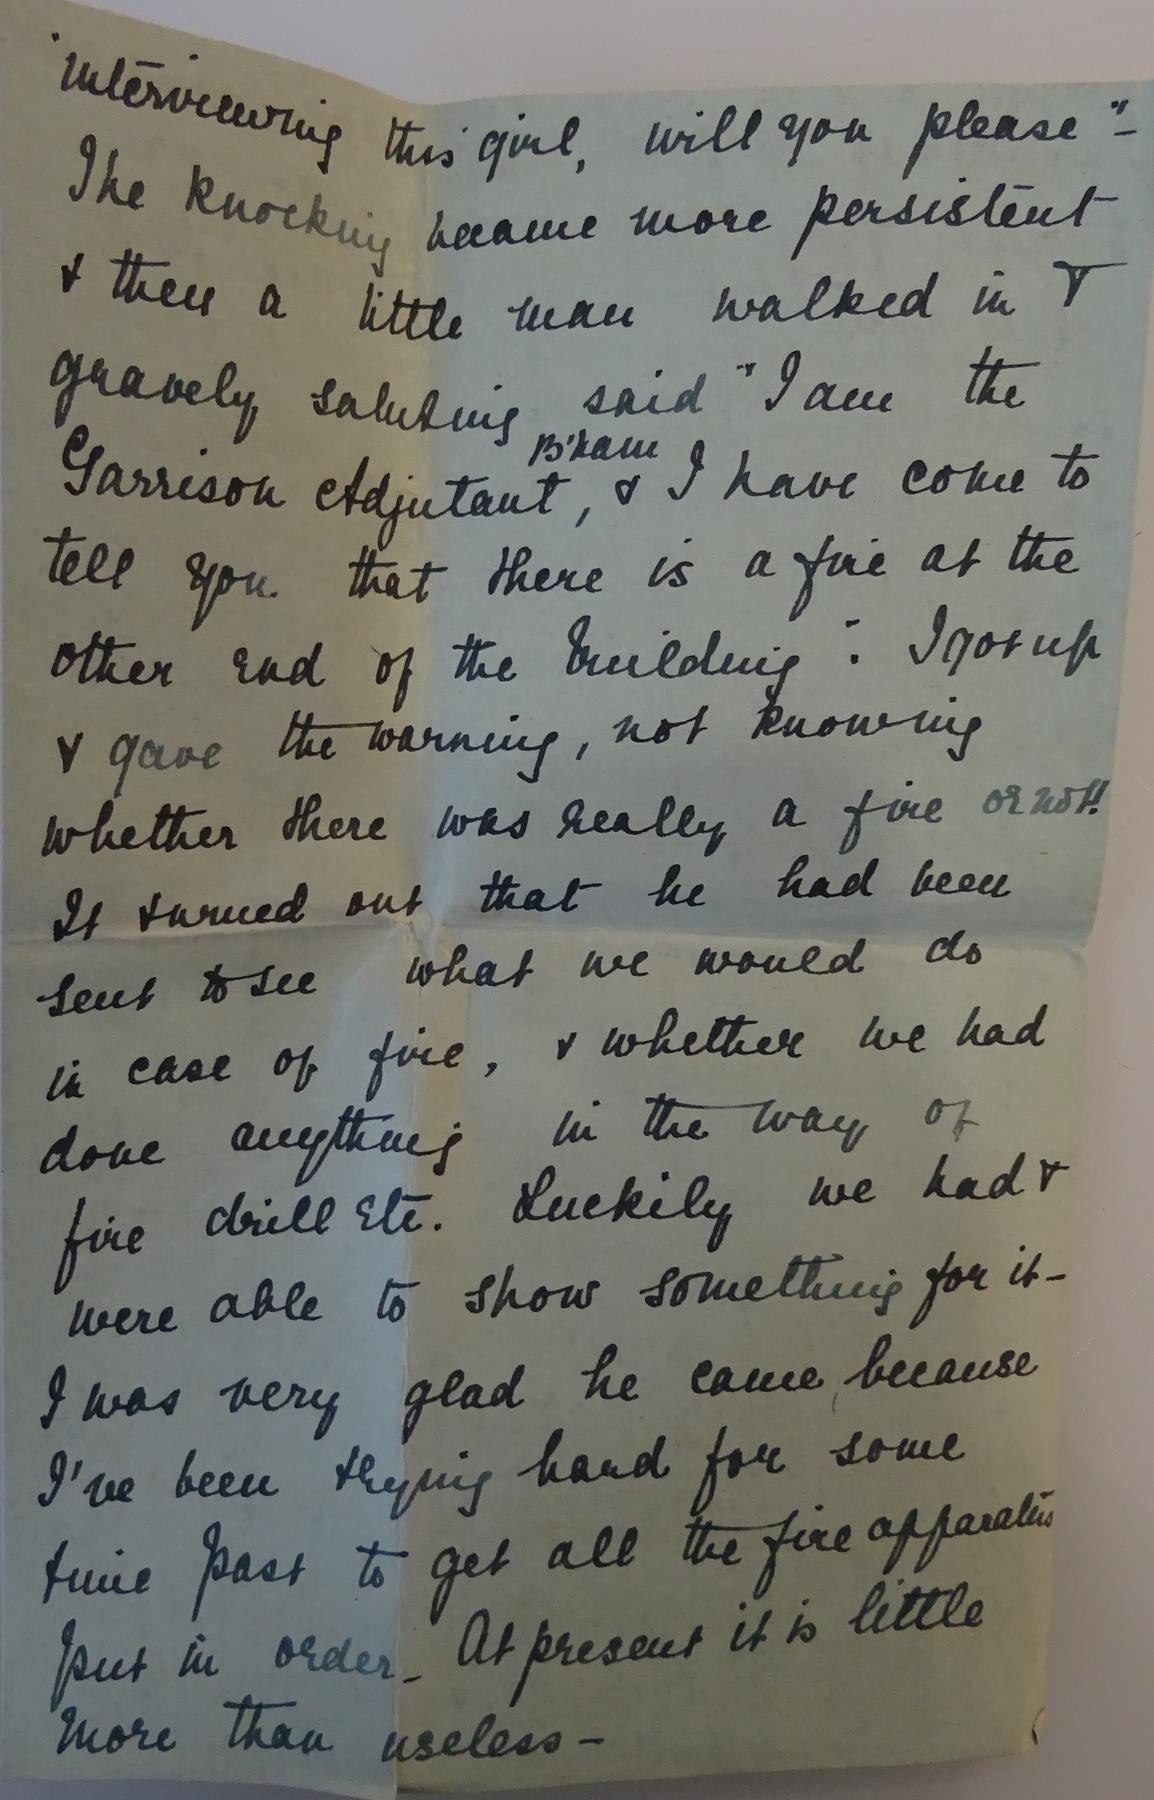 interviewing this girl, will you please" -
The knocking became more persistent
& then a little man walked in &
gravely saluting said "I am the
B'ham
Garrison Adjutant, & I have come to
tell you that there is a fire at the
other end of the building". I got up
& gave the warning, not knowing
whether there was really a fire or not!
It turned out that he had been
sent to see what we would do
in case of fire, & whether we had
done anything in the way of
fire drill etc. Luckily we had &
were able to show something for it -
I was very glad he came, because
I've been trying hard for some
time past to get all the fire apparatus
put in order - At present it is little
more than useless -